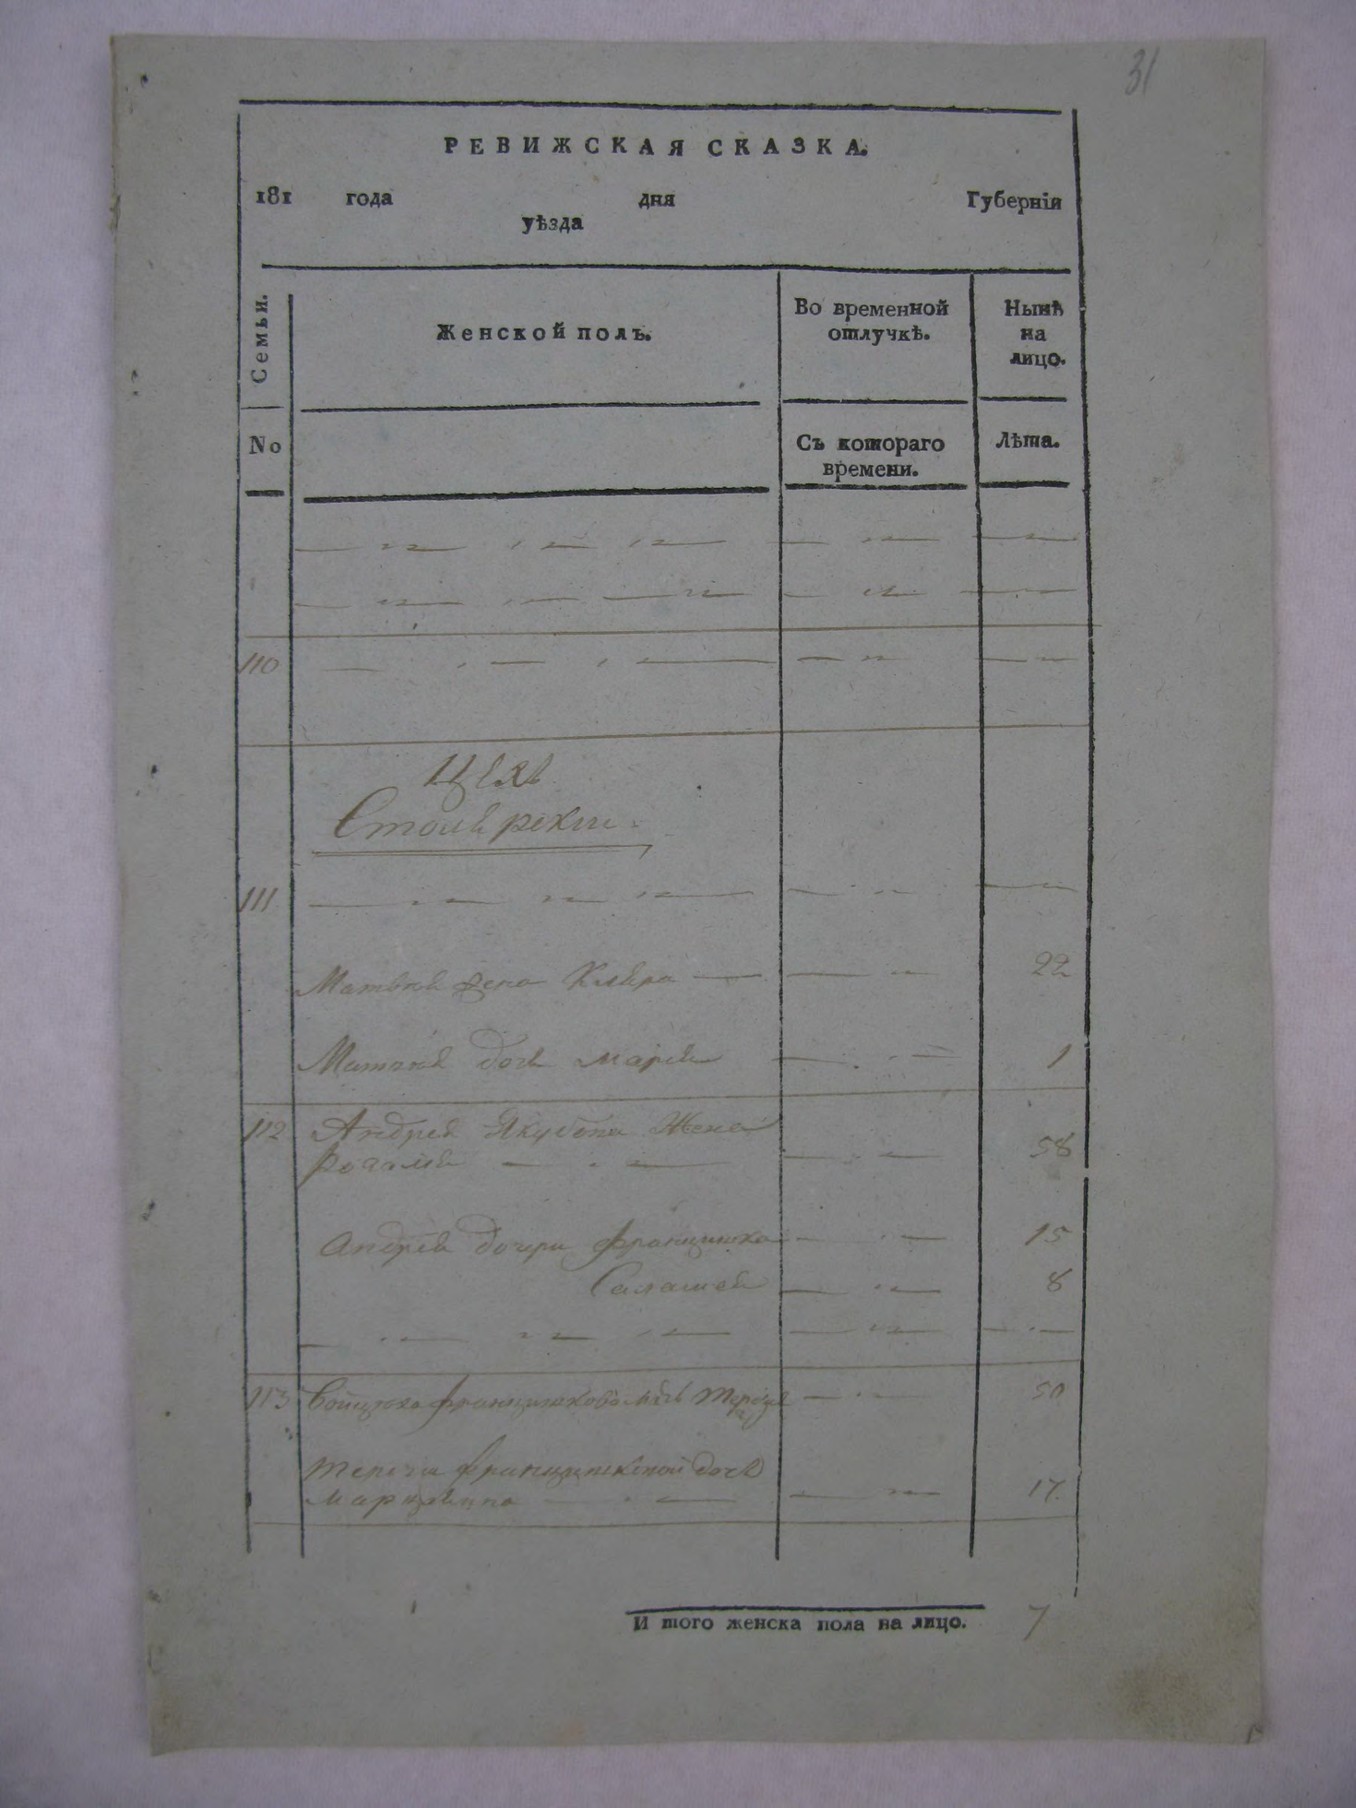 31
РЕВИЖСКАЯ СКАЗКА.
181 года дня Губерніи
уѣзда
Семьи.
Женской полъ.
Во временной
отлучкѣ.
Нынѣ
на
лицо.
No
Съ котораго
времени.
Лѣта.
110
Цехъ
111
Матвѣя жена Клара 22
Матвѣя дочь Марія 1
112 Андрея Якубова Жена
Розалія 58
Андрея дочери Францишка 15
Саломея 8
113 Войцеха Францишкова мать Тереза 50
дочь
Марцеянна 17
И того женска пола на лицо. 7